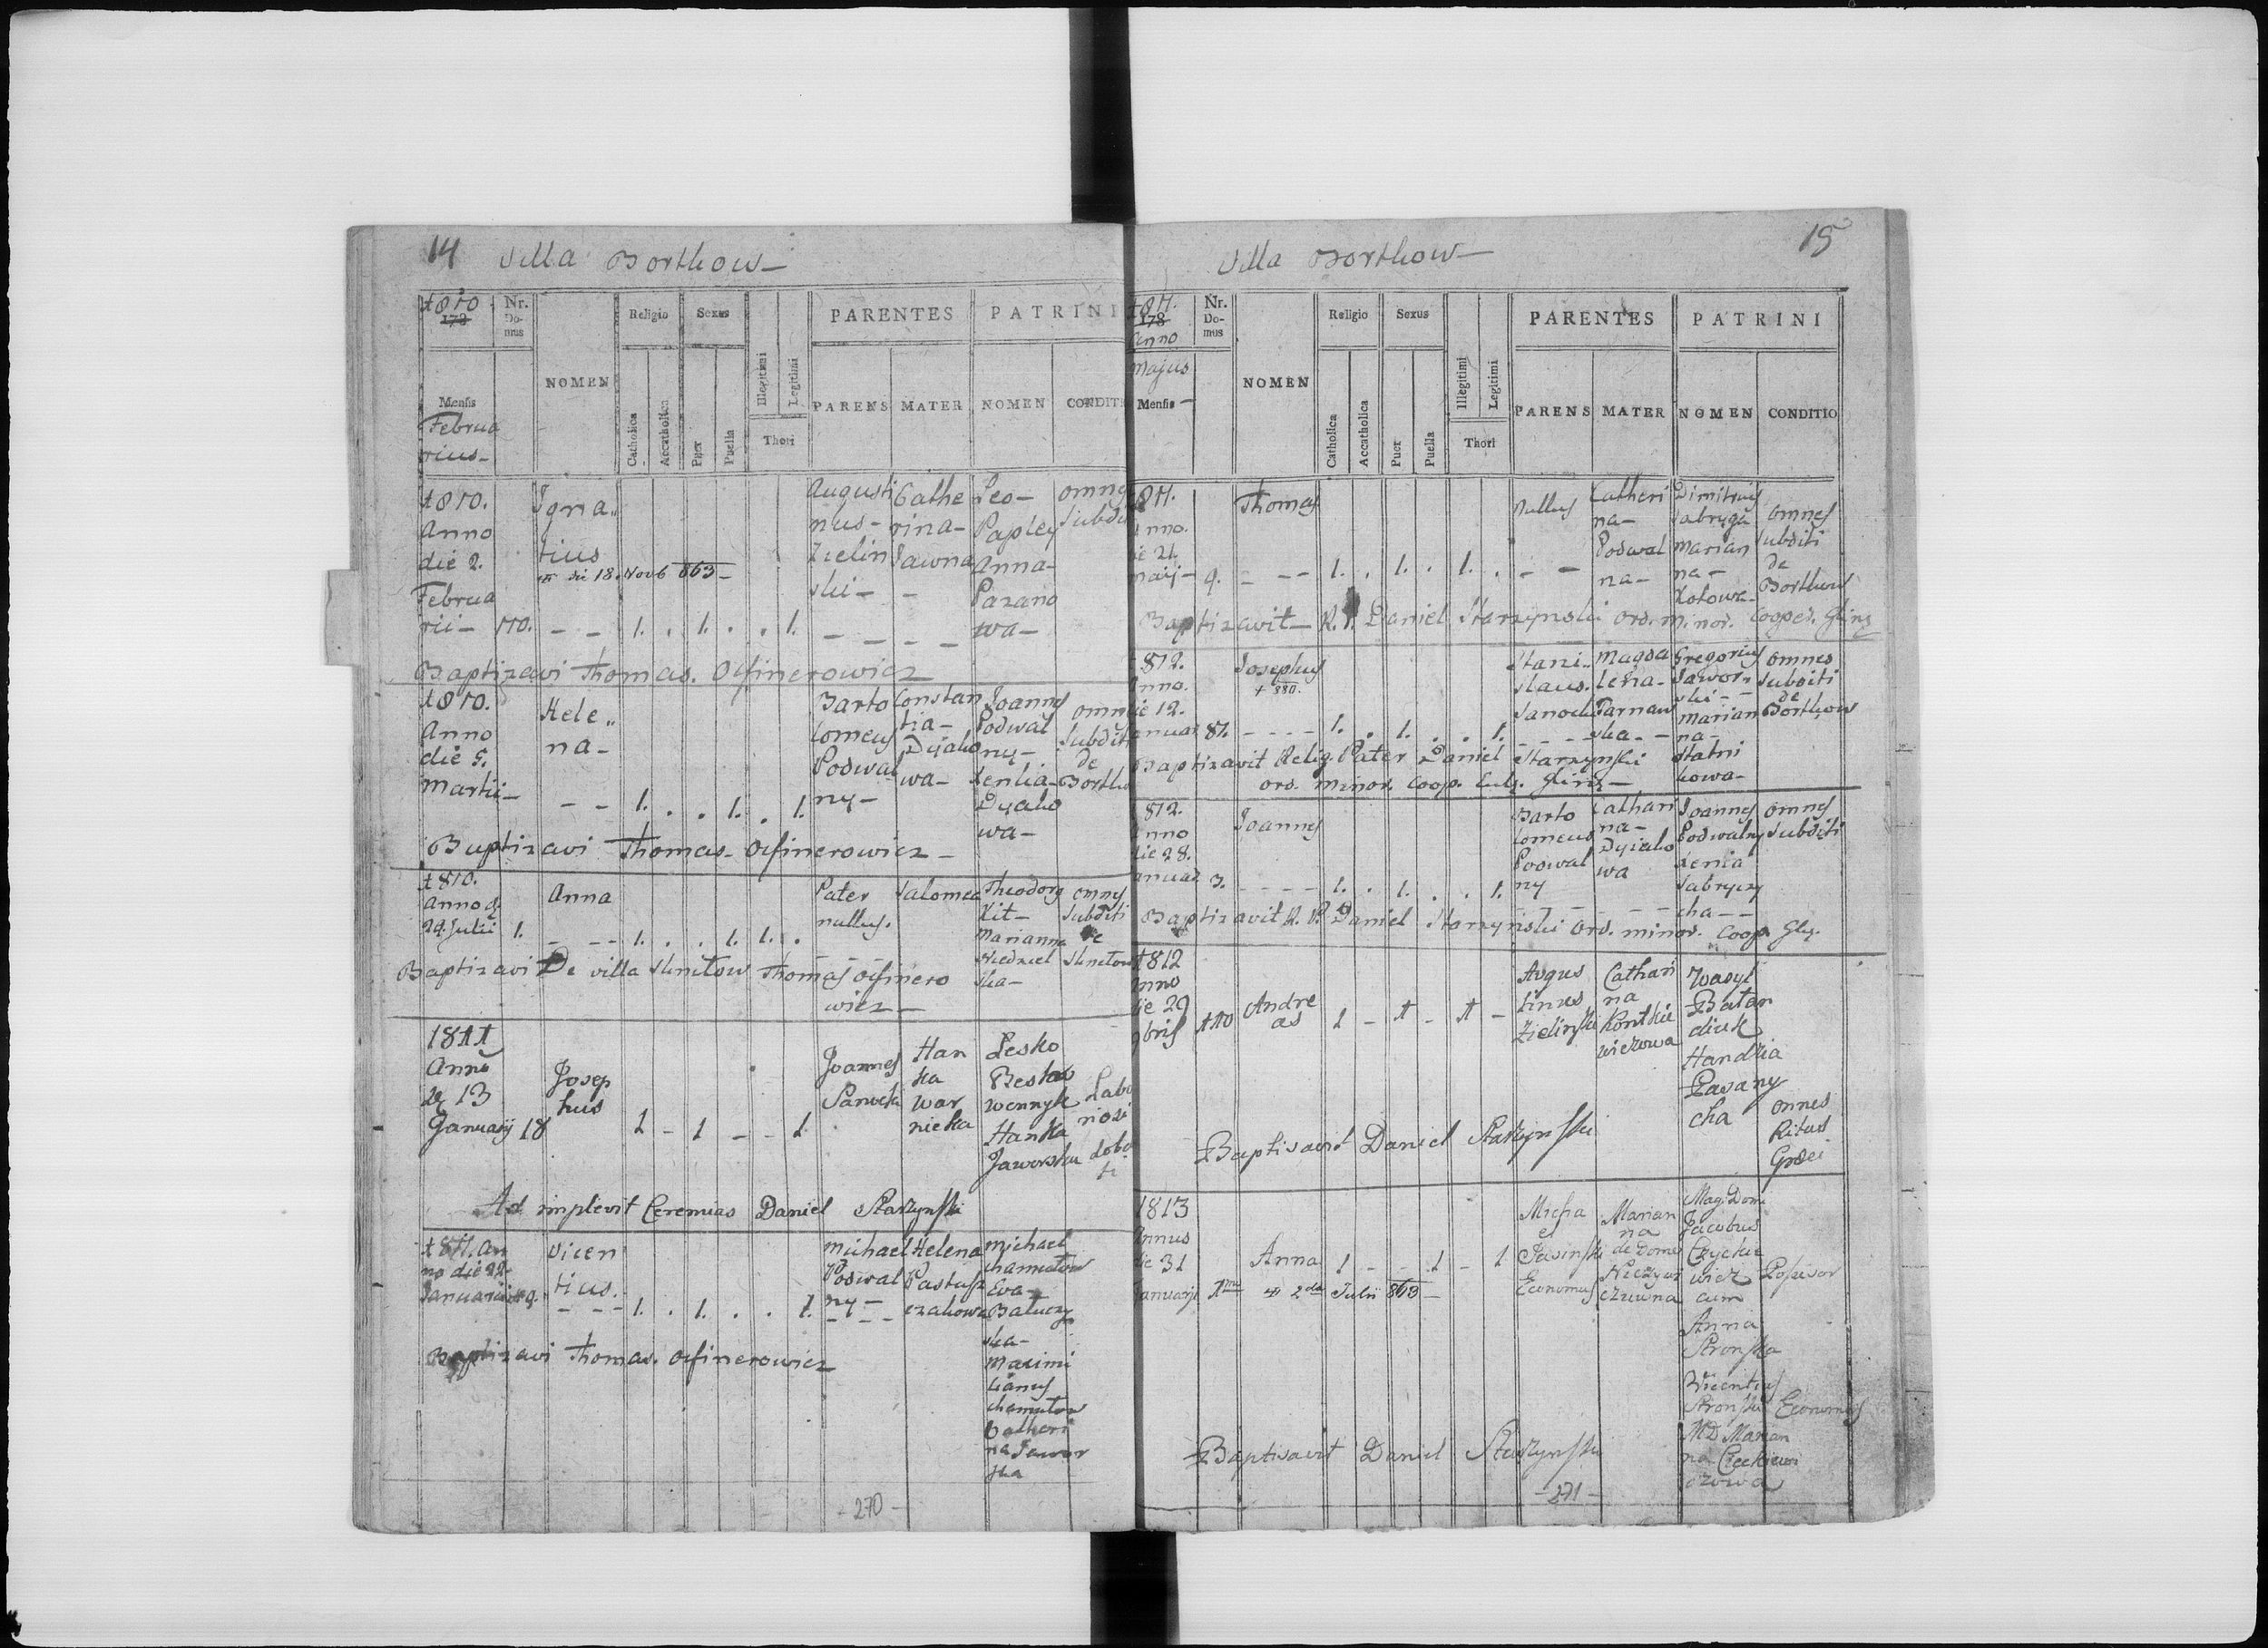 14 Villa Borthow
1810
178
Nr. Do-mus
NOMEN
Religio
Catholica
Accatholica
Sexus
Puer
Puella
Illegitimi
Legitimi
Thori
PARENTES
PARENS
MATER
PATRINI
NOMEN
CONDITI
Mensis
Februa
rius
1810.
Anno
die 2.
Februa
rii 110.
Igna„
tius
die 18. Novb 863
1. . 1. . . 1.
Augusti
nus
Zielin
ski
Cathe
rina
Sawna
Leo
Papley
Anna
Pazano
wa
omnes
subdi
Baptizavi Thomas. Ofinerowicz
1810.
Anno
die 5.
Martii
Hele„
na
1. . . 1. . 1.
Barto
lomeus
Podwal
ny
Constan
tia
Dyako
wa
Joannes
Podwal
ny
Xenia
Dyako
wa
omn
subditi
de
Bortho
Baptizavi Thomas Ofinerowicz
1810.
Anno d.
29. Julii 1.
Anna
1. . . 1. 1. .
Pater
nullus.
Salomea
Theodorg
Kit
Marianna
Niedziel
ska
omnes
subditi
de
Sknitow
Baptizavi De villa Sknitow Thomas Ofinero
wicz
1811
Anno
de 13
Januarij 18
Josep
hus
1 - 1 - - 1
Joannes
Sanocki
Han
ka
War
nicka
Lesko
Hanka
Jaworska
Labo
riosi
Ad implevit Ceremias Daniel Starzynski
1811. An
no die 22
Januarii 9.
Vicen
tius.
1. . 1. . . 1.
Michael
Podwal
ny
Helena
Pastusz
czakowa
Michael
Chamutow
Eva
Baluczy
ska
Maximi
lianus
Chamutow
Catheri
na Jawor
ska
Baptizavi Thomas. Ofinerowicz
- 270 -
Villa Borthow 15
1811.
178
Anno
Majus
Mensis
Nr. Do-mus
NOMEN
Religio
Catholica
Accatholica
Sexus
Puer
Puella
Illegitimi
Legitimi
Thori
PARENTES
PARENS
MATER
PATRINI
NOMEN
CONDITIO
1811.
Anno.
die 21.
Maij 9.
Thomas
1. . 1. . 1. .
Nullus
Catheri
na
Podwal
na
Dimitrius
Sabryga
Marian
na
Kotowa
omnes
subditi
de
Borthow
Baptizavit R. P. Daniel Starzynski ord. Minor. Cooper. Glinz
1812.
Anno.
die 12.
Januar 87.
Josephus
+ 880.
1. . 1. . . 1.
Stani„
slaus.
Sanocki
Magda
lena
Tarnaw
ska
Gregorius
Jawor„
ski
Marian
na
Statni
kowa
omnes
subditi
de
Borthow
Baptizavit Relig. Pater Daniel Starzynski
ord. Minor. Coop. Glinz
1812.
Anno
die 28.
Januar 3.
Joannes
1. . 1. . . 1.
Barto
lomeus
Podwal
ny
Cathari
na
Dyiako
wa
Joannes
Podwalny
Xenia
Sabryczy
cha
omnes
subditi
Baptizavit R. P. Daniel Starzynski Ord. minor. Coop. Gly.
1812
Anno
die 29
9bris 110
Andre
as
1 - 1 - 1 -
Augus
tinus
Zielinski
Cathari
na
Kontkie
wiczowa
Wasyl
Batan
diuk
Handzia
Pasany
cha
omnes
Ritus
Graeci
Baptisavit Daniel Starzynski
1813
Annus
die 31
Januarji 1mo
Anna
2da Julii 863
1 - - 1 - 1
Micha
el
Jasinski
Economus
Marian
na
de Domo
Niezywi
czuwna
Mag. Dom.
Jacobus
Czyckie
wicz
cum
Anna
Stronska
Vicentius
Stronski
MD Marian
na Czeckiewi
czowa
Posesor
Economus
Baptisavit Daniel Starzynski
- 271 -